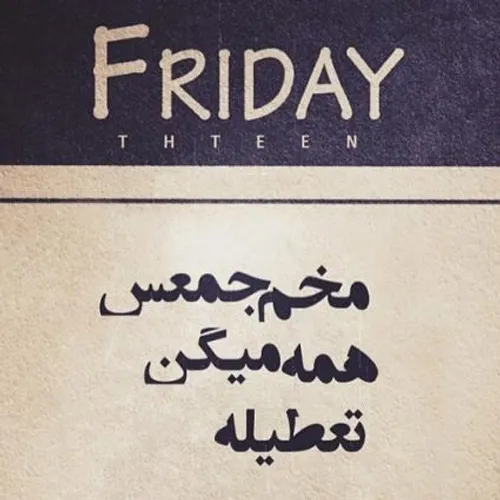 FRIDAY
THTEEN
مخم جمعس
همه میگن
تعطیله